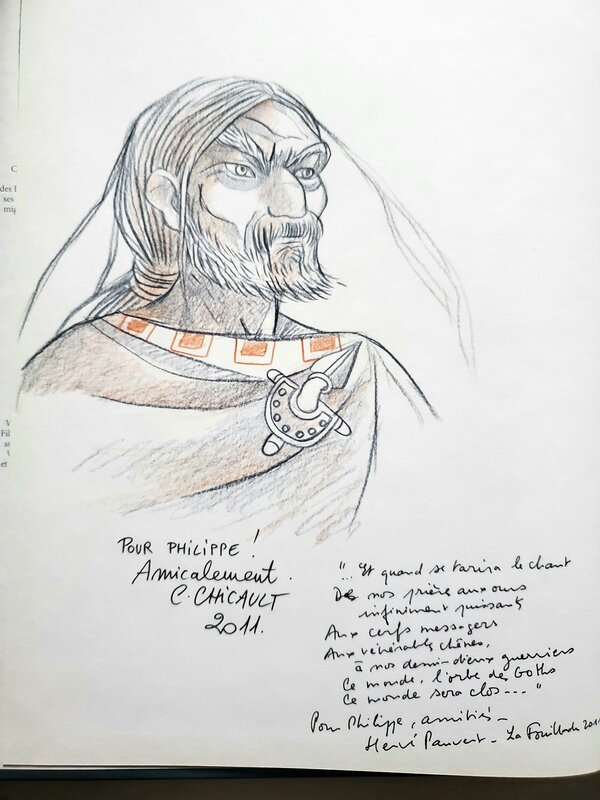 POUR PHILIPPE !
Amicalement.
C. CHICAULT
2011.
"... Et quand se tarira le chant
Des nos prière aux ours
infiniment puissants
Aux cerfs messagers
Aux vénérables chênes,
à nos demi-dieux guerriers
Ce monde, l'orbe des Goths
Ce monde sera clos... "
Pour Philippe, amitiés -
Hervé Pauvert - La Fouillade 2011
C
des
ses
mig
V
Fil
et